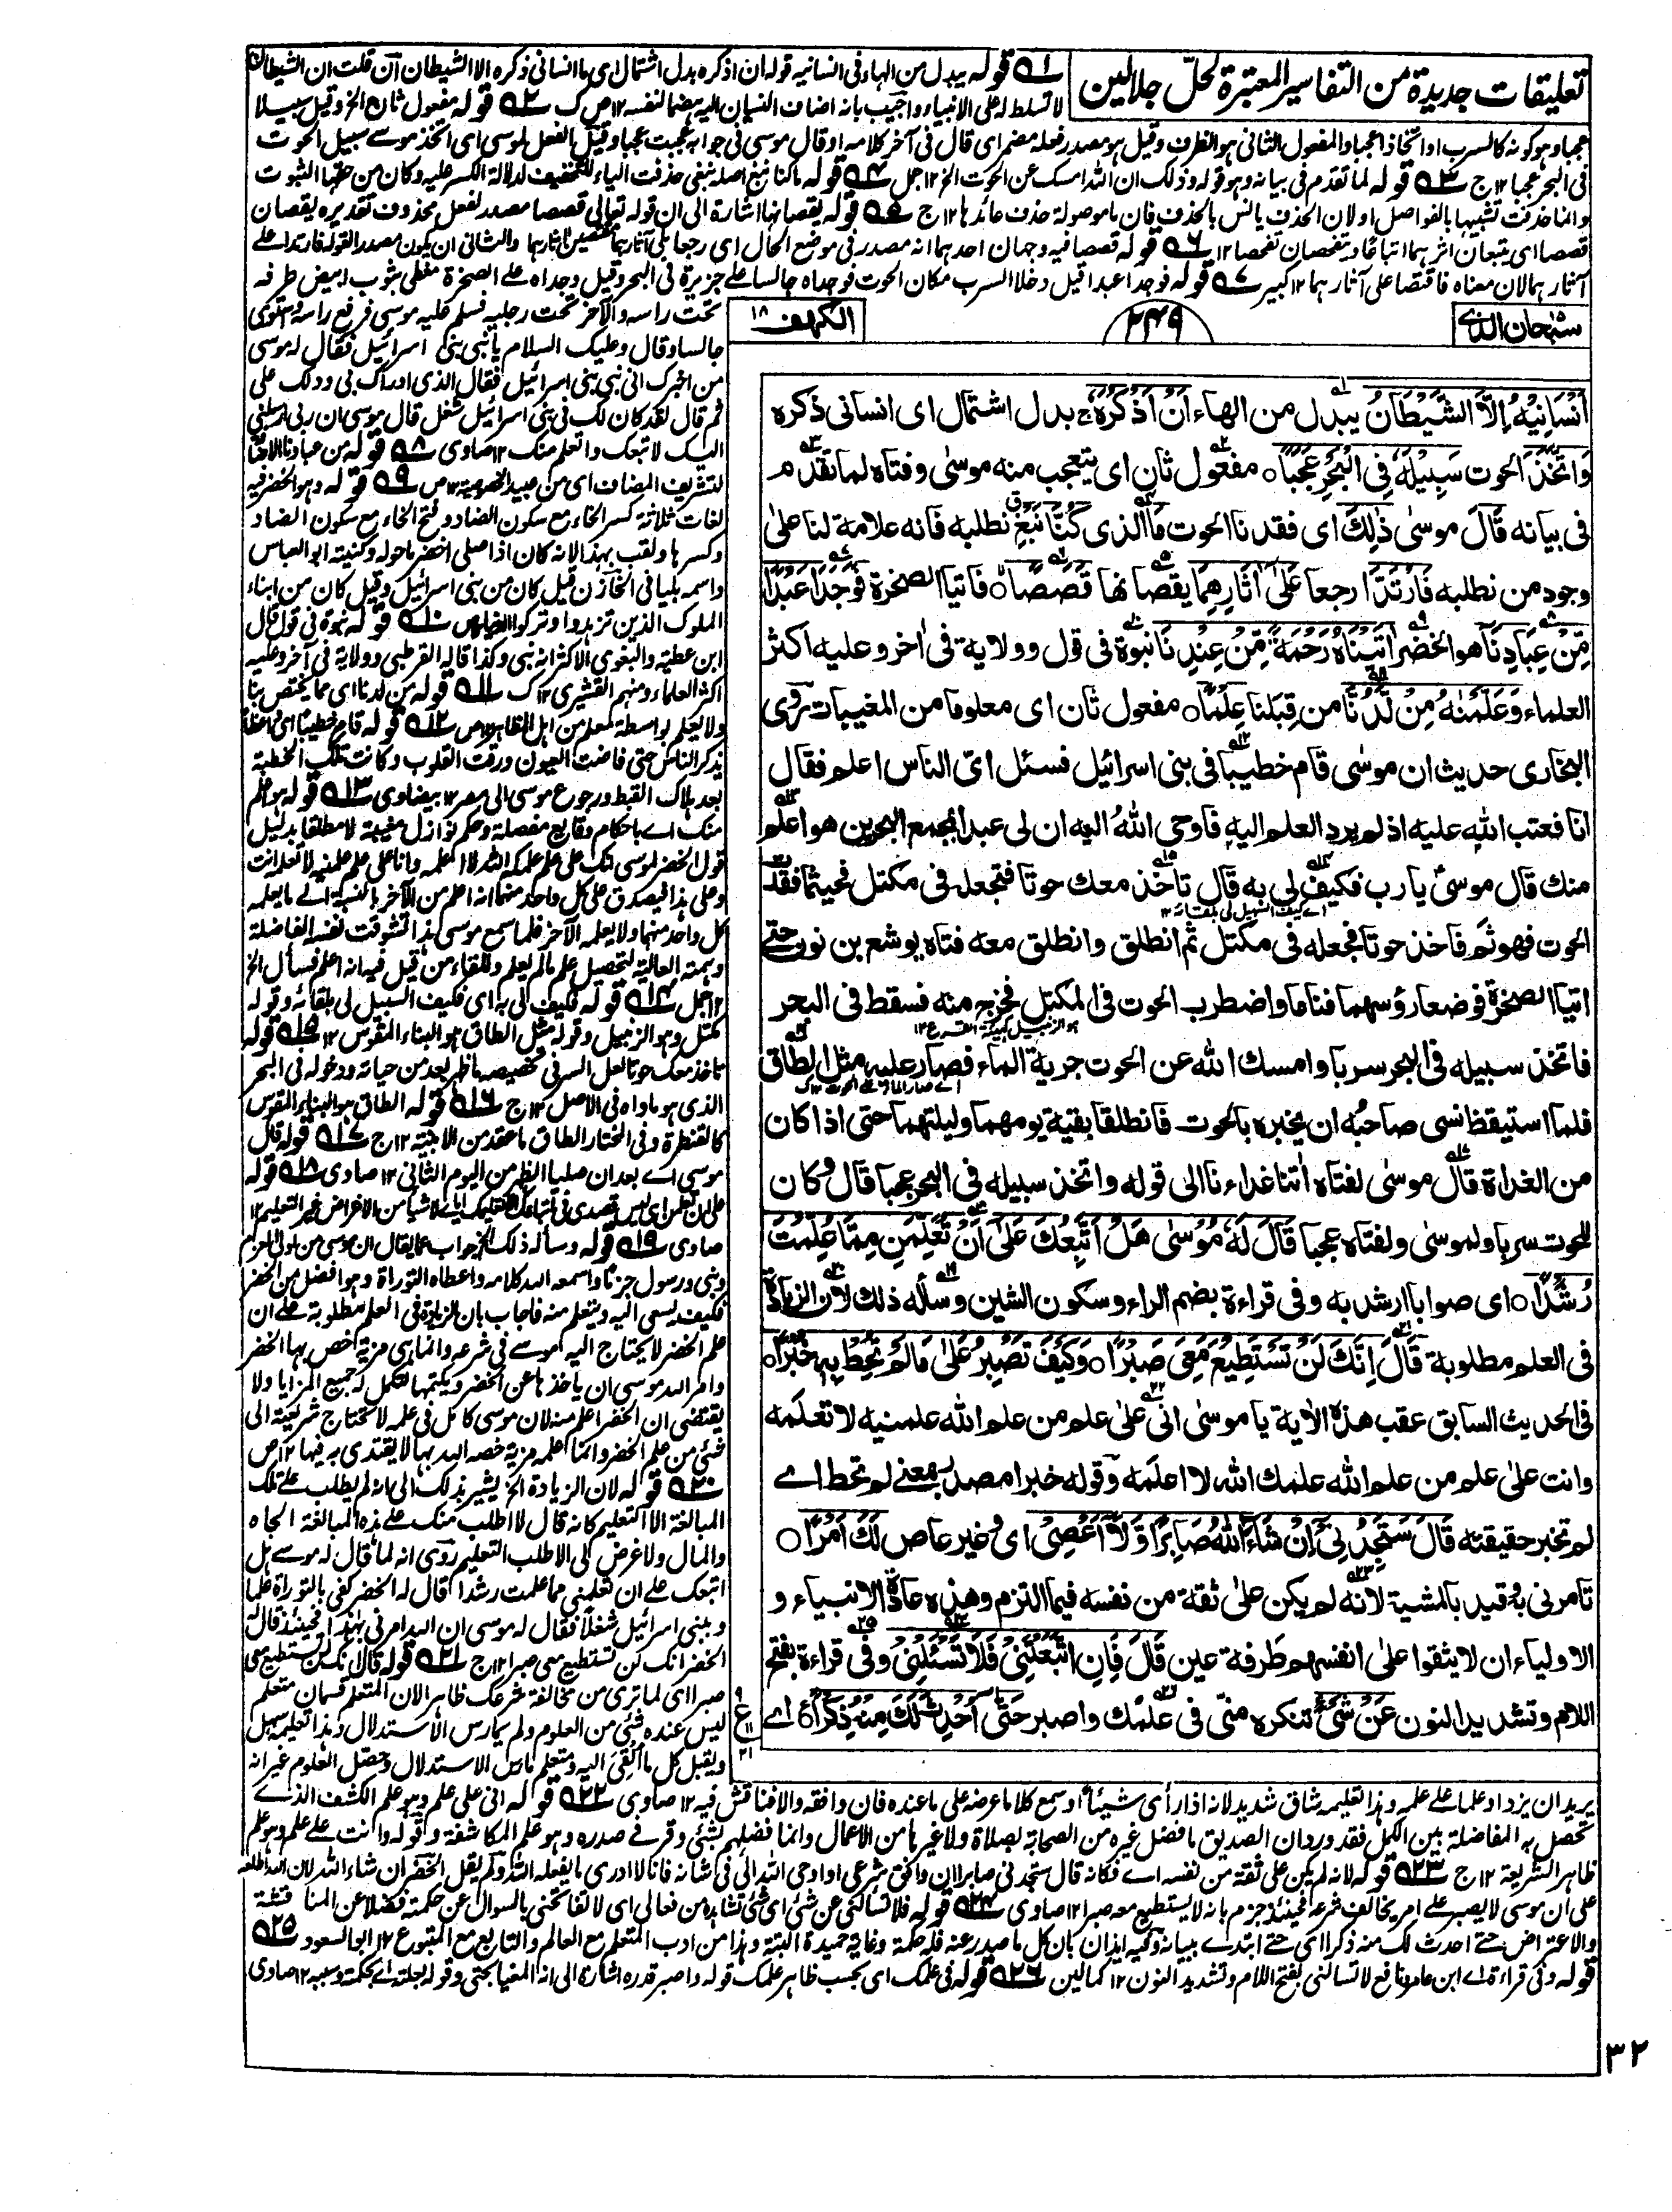 تعليقات جديدة من التفاسير المعتبرة لحلّ جلالين
له قوله يبدل من الهاء فى انسانيه قوله ان اذكره بدل اشتمال اى ما انسانى ذكره الا الشيطان فان قلت ان الشيطان
لا تسلط له على الانبياء واجيب بانه اضاف النسيان اليه هضما لنفسه ١٢ ص ك ٢ قوله مفعول ثان الخ وقيل سبيلا
عجبا وهو كونه كالسرب او اتخاذا عجبا والمفعول الثانى هو الظرف وقيل هو مصدر فعله مضمر اى قال فى آخر كلامه او قال موسى فى جوابه عجبت عجبا وقيل الفعل لموسى اى اتخذ موسے سبيل الحوت
فى البحر عجبا ١٢ ج ٣ قوله لما تقدم فى بيانه وهو قوله وذلك ان الله امسك عن الحوت الخ ١٢ جمل ٤ قوله ما كنا نبغ اصله نبغى حذفت الياء للتخفيف لدلالة الكسر عليه وكان من حقها الثبوت
وانما حذفت تشبيها بالفواصل او لان الحذف يانس بالحذف فان ما موصولة حذف عائدها ١٢ ج ٥ قوله يقصانها اشارة الى ان قوله تعالى قصصا مصدر لفعل محذوف تقديره يقصان
قصصا اى يتبعان اثرهما اتباعا ويتفحصان تفحصا ١٢ ٦ قوله قصصا فيه وجهان احدهما انه مصدر فى موضع الحال اى رجعا على آثارهما مقتصين آثارهما والثانى ان يكون مصدرا لقوله فارتدا على
آثارهما لان معناه فاقتصا على آثارهما ١٢ كبير ٧ قوله فوجدا عبدا قيل دخلا السرب مكان الحوت فوجداه جالسا على جزيرة فى البحر وقيل وجداه على الصخرة مغطى بثوب ابيض طرفه
سبحان الذى
٢٤٩
الكهف ١٨
اَنْسٰنِيْهُ اِلَّا الشَّيْطَانُ يبدل من الهاء اَنْ اَذْكُرَهٗ ج بدل اشتمال اى انسانى ذكره
وَاتَّخَذَ الحوت سَبِيْلَهٗ فِى الْبَحْرِ عَجَبًا ٥ مفعول ثان اى يتعجب منه موسىٰ وفتاه لما تقدم
فى بيانه قَالَ موسىٰ ذٰلِكَ اى فقدنا الحوت مَا الذى كُنَّا نَبْغِ نطلبه فانه علامة لنا علىٰ
وجود من نطلبه فَارْتَدَّا رجعا عَلٰى اٰثَارِهِمَا يقصانها قَصَصًا ٥ فاتيا الصخرة فَوَجَدَا عَبْدًا
مِّنْ عِبَادِنَا هو الخضر اٰتَيْنَاهُ رَحْمَةً مِّنْ عِنْدِنَا نبوة فى قول وولاية فى اٰخر وعليه اكثر
العلماء وَعَلَّمْنٰهُ مِنْ لَّدُنَّا من قبلنا عِلْمًا ٥ مفعول ثان اى معلوما من المغيبات روى
البخارى حديث ان موسٰى قام خطيبا فى بنى اسرائيل فسئل اىّ الناس اعلم فقال
انا فعتب الله عليه اذ لم يرد العلم اليه فاوحى اللهُ اليه ان لى عبدا بمجمع البحرين هو اعلم
منك قال موسىٰ يا رب فكيف لى به قال تاخذ معك حوتا فتجعله فى مكتل فحيثما فقدت
اے كيف السبيل لى بلقائه ١٢
الحوت فهو ثَمّ فاخذ حوتا فجعله فى مكتل ثم انطلق وانطلق معه فتاه يوشع بن نون حتے
اتيا الصخرة فوضعا رؤسهما فناما واضطرب الحوت فى المكتل فخرج منه فسقط فى البحر
فاتخذ سبيله فى البحر سربا وامسك الله عن الحوت جرية الماء فصار عليه مثل الطاق
فلما استيقظ نسى صاحبه ان يخبره بالحوت فانطلقا بقية يومهما وليلتهما حتى اذا كان
من الغداة قال موسىٰ لفتاه اٰتنا غداءنا الى قوله واتخذ سبيله فى البحر عجبا قال وكان
للحوت سربا ولموسىٰ ولفتاه عجبا قَالَ لَهٗ مُوْسٰى هَلْ اَتَّبِعُكَ عَلٰٓى اَنْ تُعَلِّمَنِ مِمَّا عُلِّمْتَ
رُشْدًا ٥ اى صوابا ارشد به وفى قراءة بضم الراء وسكون الشين وسأله ذلك لان الزيادة
فى العلم مطلوبة قَالَ اِنَّكَ لَنْ تَسْتَطِيْعَ مَعِىَ صَبْرًا ٥ وَكَيْفَ تَصْبِرُ عَلٰى مَا لَمْ تُحِطْ بِهٖ خُبْرًا ٥
فى الحديث السابق عقب هذه الاٰية يا موسىٰ انى علىٰ علم من علم الله علمنيه لا تعلمه
وانت علىٰ علم من علم الله علمك الله لا اعلمه وقوله خبرا مصدر بمعنى لم تحط اے
لم تخبر حقيقته قَالَ سَتَجِدُنِىْٓ اِنْ شَآءَ اللّٰهُ صَابِرًا وَّلَآ اَعْصِىْ اى وغير عاص لَكَ اَمْرًا ٥
تامرنى به وقيد بالمشية لانه لم يكن علىٰ ثقة من نفسه فيما التزم وهذه عادة الانبياء و
الاولياء ان لا يثقوا علىٰ انفسهم طرفة عين قَالَ فَاِنِ اتَّبَعْتَنِىْ فَلَا تَسْئَلْنِىْ وفى قراءة بفتح
اللام وتشديد النون عَنْ شَىْءٍ تنكره منّى فى علمك واصبر حَتّٰٓى اُحْدِثَ لَكَ مِنْهُ ذِكْرًا ٥ اے
تحت راسه والآخر تحت رجليه فسلم عليه موسى فرفع راسه واستوى
جالسا وقال وعليك السلام يا نبى بنى اسرائيل فقال له موسى
من اخبرك انى نبى بنى اسرائيل فقال الذى ادراك بى ودلك على
ثم قال لقد كان لك فى بنى اسرائيل شغل قال موسى ان ربى ارسلنى
اليك لاتبعك واتعلم منك ١٢ صاوى ٨ قوله من عبادنا الاضافة
لتشريف المضاف اى من عبيد الخصوصية ١٢ ص ٩ قوله وهو الخضر فيه
لغات ثلاثة كسر الخاء مع سكون الضاد وفتح الخاء مع سكون الضاد
وكسرها ولقب بهذا لانه كان اذا صلى اخضر ما حوله وكنيته ابو العباس
واسمه بليا فى الخازن قيل كان من بنى اسرائيل وقيل كان من ابناء
الملوك الذين تزهدوا وتركوا الدنيا ١٢ ص ١٠ قوله نبوة فى قول قال
ابن عطية والبغوى الاكثر انه نبى وكذا قاله القرطبى وولاية فى آخر وعليه
اكثر العلماء ومنهم القشيرى ١٢ ك ١١ قوله من لدنا اى مما يختص بنا
ولا يعلم بواسطة معلم من اهل الظاهر ١٢ ص ١٢ قوله قام خطيبا اى واعظا
يذكر الناس حتى فاضت العيون ورقت القلوب وكانت تلك الخطبة
بعد هلاك القبط ورجوع موسى الى مصر ١٢ بيضاوى ١٣ قوله هو اعلم
منك اے باحكام وقايع مفصلة وحكم نوازل معينة لا مطلقا بدليل
قول الخضر لموسى انك على علم علمكه الله لا اعلمه وانا على علم علمنيه لا تعلمه انت
وعلى هذا فيصدق على كل واحد منهما انه اعلم من الآخر بالنسبة الى ما يعلمه
كل واحد منهما ولا يعلمه الآخر فلما سمع موسى هذا تشوقت نفسه الفاضلة
وهمته العالية لتحصيل علم ما لم يعلم وللقاء من قيل فيه انه اعلم فسأل الخ
١٢ جمل ١٤ قوله فكيف لى به اى فكيف السبيل لى بلقائه وقوله
مكتل وهو الزنبيل وقوله مثل الطاق هو البناء المقوس ١٢ ١٥ قوله
تاخذ معك حوتا لعل السر فى تخصيصه ما ظهر بعد من حياته ودخوله فى البحر
الذى هو ماواه فى الاصل ١٢ ج ١٦ قوله الطاق هو البناء المقوس
كالقنطرة وفى المختار الطاق ما عقد من الابنية ١٢ ج ١٧ قوله قال
موسى اے بعد ان صليا الظهر من اليوم الثانى ١٢ صاوى ١٨ قوله
صاوى ١٩ قوله وسأله ذلك الخ جواب عما يقال ان موسى من اولى العزم
ونبى ورسول جزما واسمعه الله كلامه واعطاه التوراة وهو افضل من الخضر
فكيف يسعى اليه ويتعلم منه فاجاب بان الزيادة فى العلم مطلوبة على ان
علم الخضر لا يحتاج اليه موسے فى شرعه وانما هى مزية اختص بها الخضر
وامر الله موسى ان ياخذها عن الخضر ويكتمها لتكمل له جميع المزايا ولا
يقتضى ان الخضر اعلم منه لان موسى كامل فى علمه لا تحتاج شريعته الى
شئ من علم الخضر وانما علمه مزية خصه الله بها لا يقتدى به فيها ١٢ ص
٢٠ قوله لان الزيادة الخ يشير بذلك الى انه لم يطلب على تلك
المبالغة الا التعليم كانه قال لا اطلب منك على هذه المبالغة الجاه
والمال ولا غرض لى الا طلب التعليم روى انه لما قال له موسے هل
اتبعك على ان تعلمنى مما علمت رشدا قال له الخضر كفى بالتوراة علما
وببنى اسرائيل شغلا فقال له موسى ان الله امرنى بهذا فحينئذ قال له
الخضر انك لن تستطيع معى صبرا ١٢ ج ٢١ قوله قال انك لن تستطيع معى
صبرا اى لما ترى من مخالفة شرعك ظاهرا لان المتعلم قسمان متعلم
ليس عنده شئ من العلوم ولم يمارس الاستدلال وهذا تعليمه سهل
ويقبل كل ما القى اليه ومتعلم مارس الاستدلال وحصل العلوم غير انه
٩
ع
١١
٢١
يريد ان يزداد علما على علمه وهذا تعليمه شاق شديد لانه اذا رأى شيئا او سمع كلاما عرضه على ما عنده فان وافقه والا فناقش فيه ١٢ صاوى ٢٢ قوله انى على علم وهو علم الكشف الذے
تحصل به المفاضلة بين الكمل فقد ورد ان الصديق ما فضل غيره من الصحابة لصلاة ولا غيرها من الاعمال وانما فضلهم بشئ وقر فى صدره وهو علم المكاشفة وقوله وانت على علم وهو علم
ظاهر الشريعة ١٢ ج ٢٣ قوله لانه لم يكن على ثقة من نفسه اے فكانه قال ستجدنى صابرا ان وافق شرعى او اوحى الله الى فى شانه فانا لا ادرى ما يفعله الله ولم يقل الخضر ان شاء الله لان الله اطلعه
على ان موسى لا يصبر على امر يخالف شرعه فحينئذ جزم بانه لا يستطيع معه صبرا ١٢ صاوى ٢٤ قوله فلا تسالنى عن شئ اى شئ تشاهده من فعالى اى لا تفاتحنى بالسوال عن حكمته فضلا عن المناقشة
والاعتراض حتے احدث لك منه ذكرا اى حتے ابتدے ببيانه وفيه ايذان بان كل ما صدر عنه فله حكمة وغاية حميدة البتة وهذا من ادب المتعلم مع العالم والتابع مع المتبوع ١٢ ابو السعود ٢٥
قوله وفى قراءة اے ابن عامر ونافع لا تسالنى بفتح اللام وتشديد النون ١٢ كمالين ٢٦ قوله فى علمك اى بحسب ظاهر علمك قوله واصبر قدره اشارة الى انه المغيا بحتى وقوله بعلته اے بحكمته وسببه ١٢ صاوى
٣٢